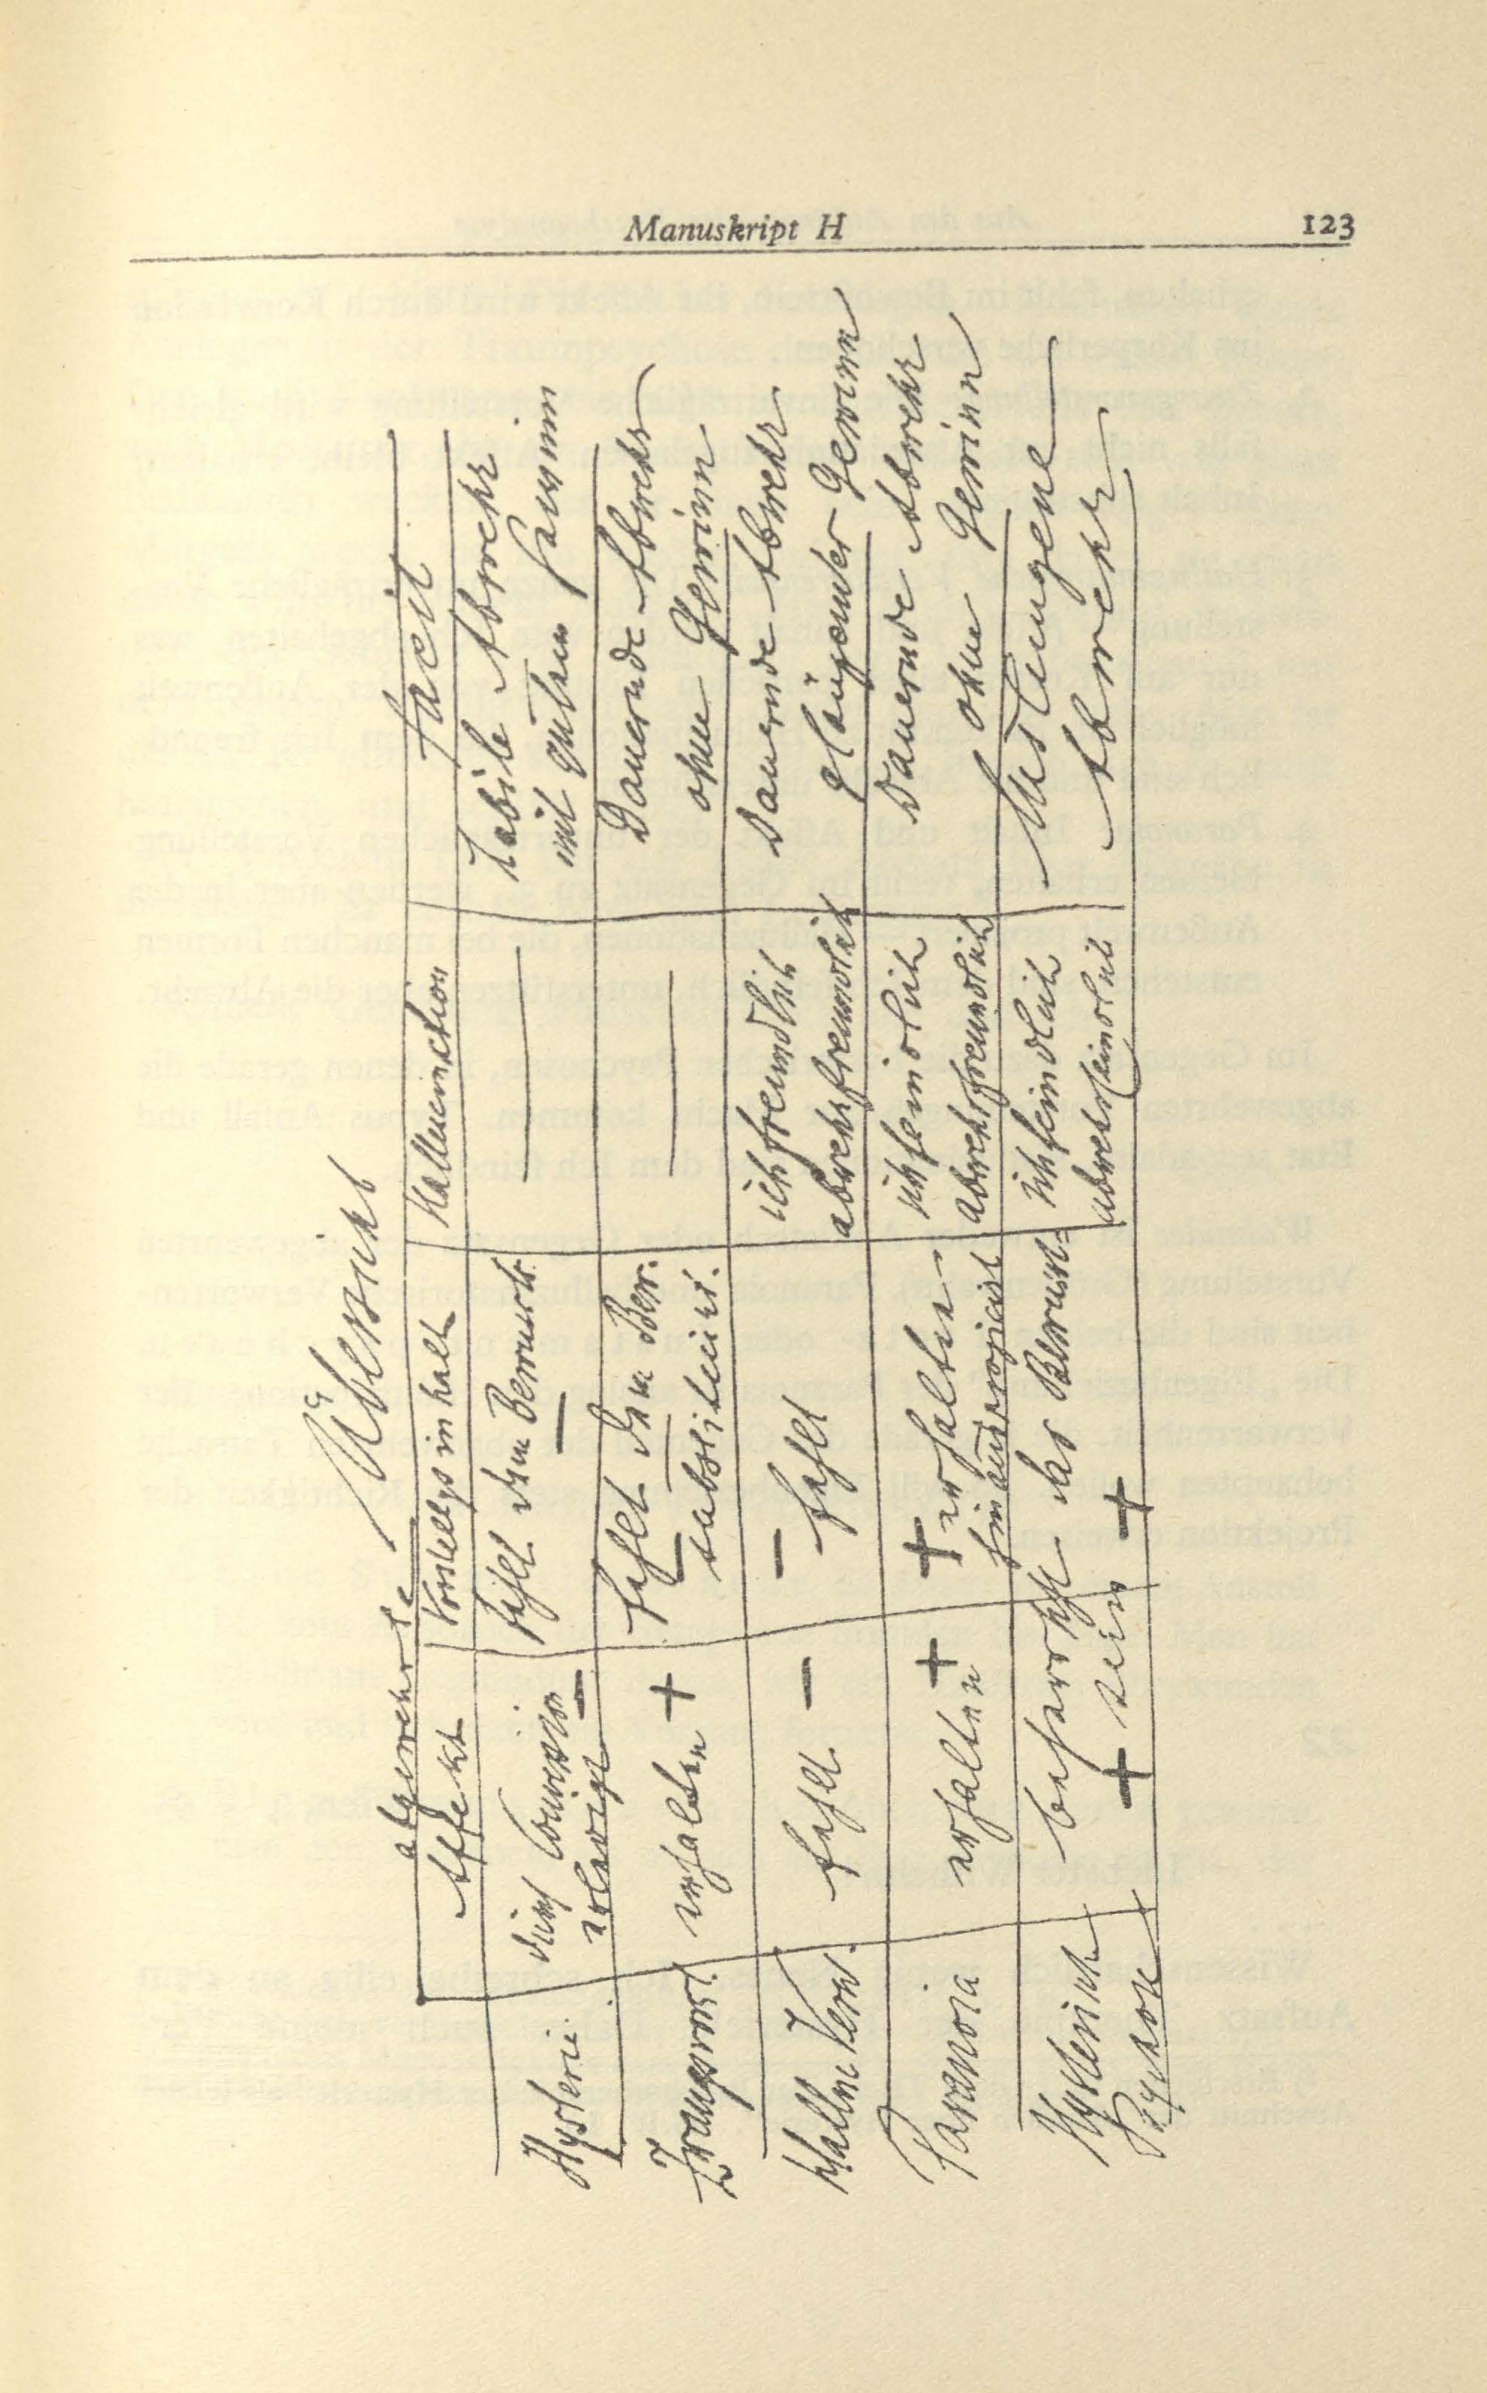 Manuskript H
123
Übersicht
abgewehrte
Affekt
Vorstellgsinhalt
Hallucination
Facit
Hysterie.
durch Conversion
erledigt –
fehlt dem Bewussts.
–
—
Labile Abwehr
mit gutem
Zwangsvorst.
erhalten +
fehlt dem Bew.
–
substituirt.
—
Dauernde Abwehr
ohne Gewinn
Halluc Verw.
fehlt. –
– fehlt
ichfreundlich
abwehrfreundlich
Dauernde Abwehr
glänzender Gewinn
Paranoia
erhalten +
+ erhalten
hinausprojicirt
ichfeindlich
abwehrfreundlich
Dauernde Abwehr
ohne Gewinn
Hysterisch
Psychose
beherrscht das Bewusst=
+ sein +
ichfeindlich
abwehrfeindlich
Mislungene
Abwehr